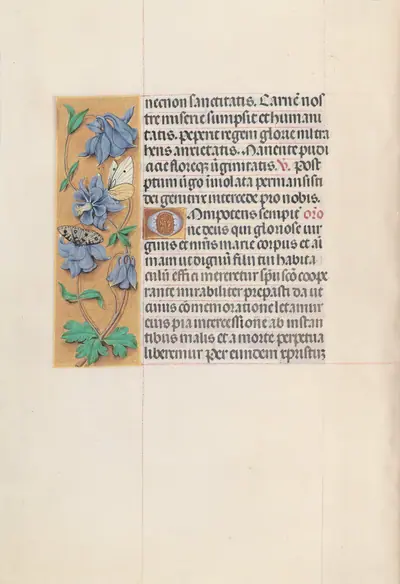 necnon sanctitatis. Carnē nos
tre miserie sumpsit et humani
tatis. peperit regem glorie nil tra
hens anxietatis. Manente pudi
cicie floreqz v̄ginitatis. V. Post
partum v̄go īuiolata permansisti
dei genitrix intercede pro nobis.
Omnipotens sempit̄ oro
ne deus qui gloriose uir
ginis et mr̄is marie corpus et aī
mam ut dignum filii tui habita
culū effici mereretur spū scō coope
rante mirabiliter preparasti da ut
cuius cōmemoratione letamur
eius pia intercessione ab instan
tibus malis et a morte perpetua
liberemur Per eundem xpristuz